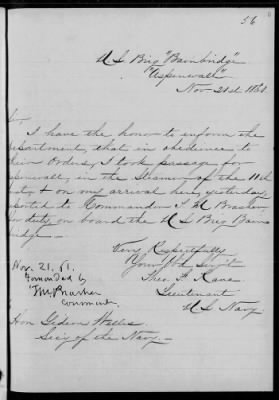 56
U S Brig "Bainbridge"
"Aspinwall"
Nov 21st 1861
I have the honor to inform the
epartment, that in obedience to
their Orders, I took passage for
spinwall, in the Steamer of the 11th
, & on my arrival here, yesterday,
ported to Commander T M Brasher
for duty on board the U S Brig Bain
bridge -
Very Respectfully
Your Obd Serv't
Theo. F. Kane
Lieutenant
U S Navy
Nov. 21. 61.
Forwarded by
T M Brasher
Command.
Hon Gideon Welles
Sec'y of the Navy -